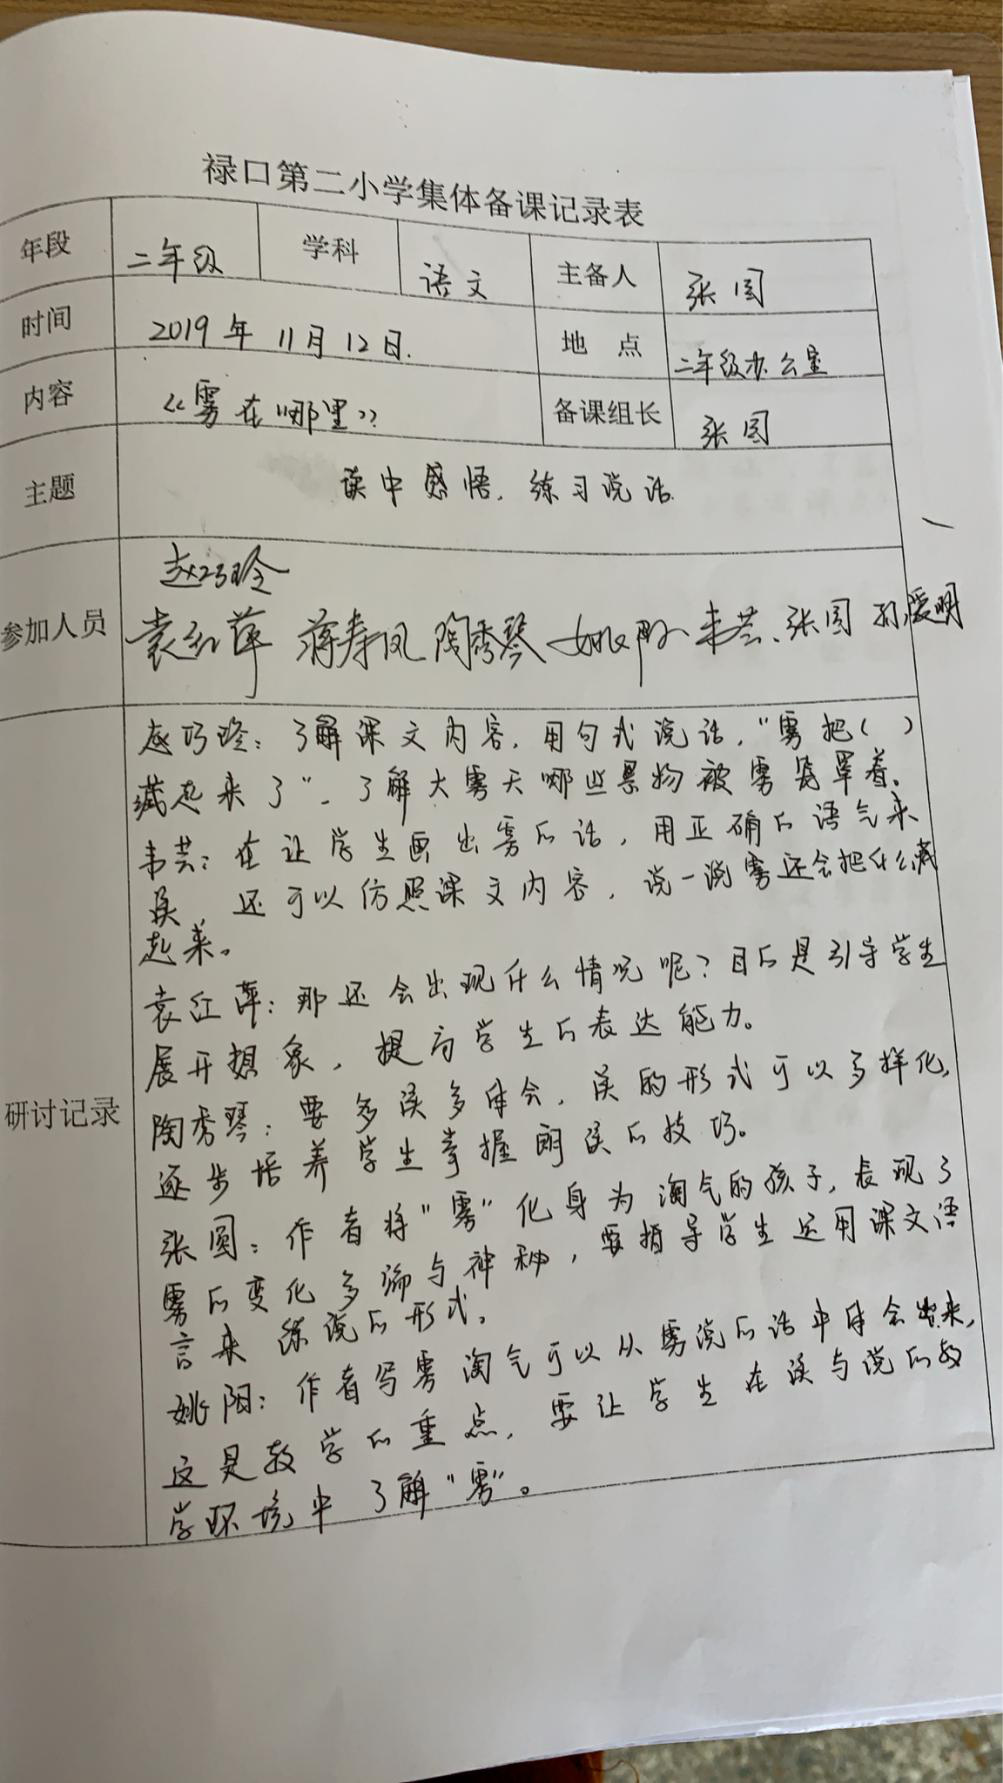 禄口第二小学集体备课记录表
年段 二年级 学科 语文 主备人 张圆
时间 2019年11月12日. 地点 二年级办公室
内容 《雾在哪里》 备课组长 张圆
主题 读中感悟,练习说话
赵巧玲
参加人员 袁红萍 蒋寿凤 陶秀琴 姚阳 韦芸、张圆 孙爱明
赵巧玲:了解课文内容,用句式说话,“雾把( )
藏起来了”。了解大雾天哪些景物被雾笼罩着。
韦芸:在让学生画出雾的话,用正确的语气来
读,还可以仿照课文内容,说一说雾还会把什么藏
起来。
袁红萍:那还会出现什么情况呢?目的是引导学生
展开想象,提高学生的表达能力。
研讨记录
陶秀琴:要多读多体会,读的形式可以多样化,
逐步培养学生掌握朗读的技巧。
张圆:作者将“雾”化身为淘气的孩子,表现了
雾的变化多端与神秘,要指导学生运用课文语
言来练说的形式。
姚阳:作者写雾淘气可以从雾说的话中体会出来,
这是教学的重点,要让学生在读与说的教
学环境中了解“雾”。